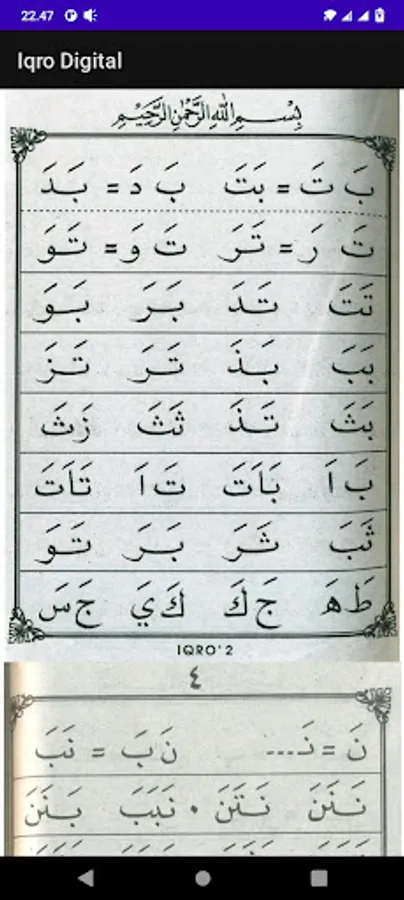 22.47
Iqro Digital
بِسْمِ اللهِ الرَّحْمٰنِ الرَّحِيْمِ
بَ تَ = بَتَ   بَ دَ = بَدَ
تَ رَ = تَرَ   تَ وَ = تَوَ
تَتَ   تَدَ   بَرَ   بَوَ
بَبَ   بَذَ   تَرَ   تَزَ
بَثَ   تَذَ   ثَثَ   زَثَ
بَ اَ   بَاَتَ   تَ اَ   تَاَتَ
ثَبَ   ثَرَ   بَرَ   تَوَ
طَ هَ   جَ كَ   كَ يَ   جَ سَ
IQRO' 2
٤
نَ = نَـ...   نَ بَ = نَبَ
نَنَنَ   نَتَنَ . نَبَبَ   بَنَنَ